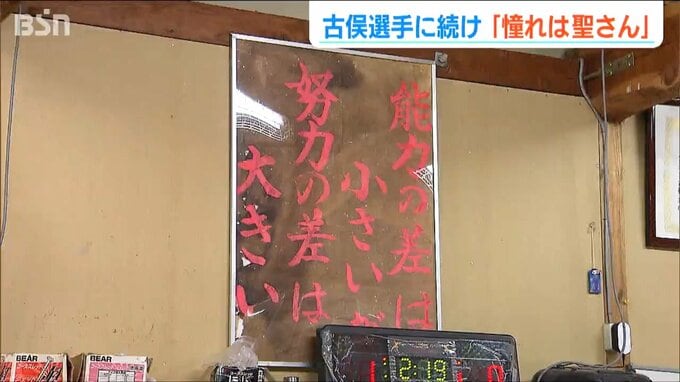 BSN
古俣選手に続け「憧れは聖さん」
能力の差は
小さいが
努力の差は
大きい
BEAR
BEAR
12:19
0